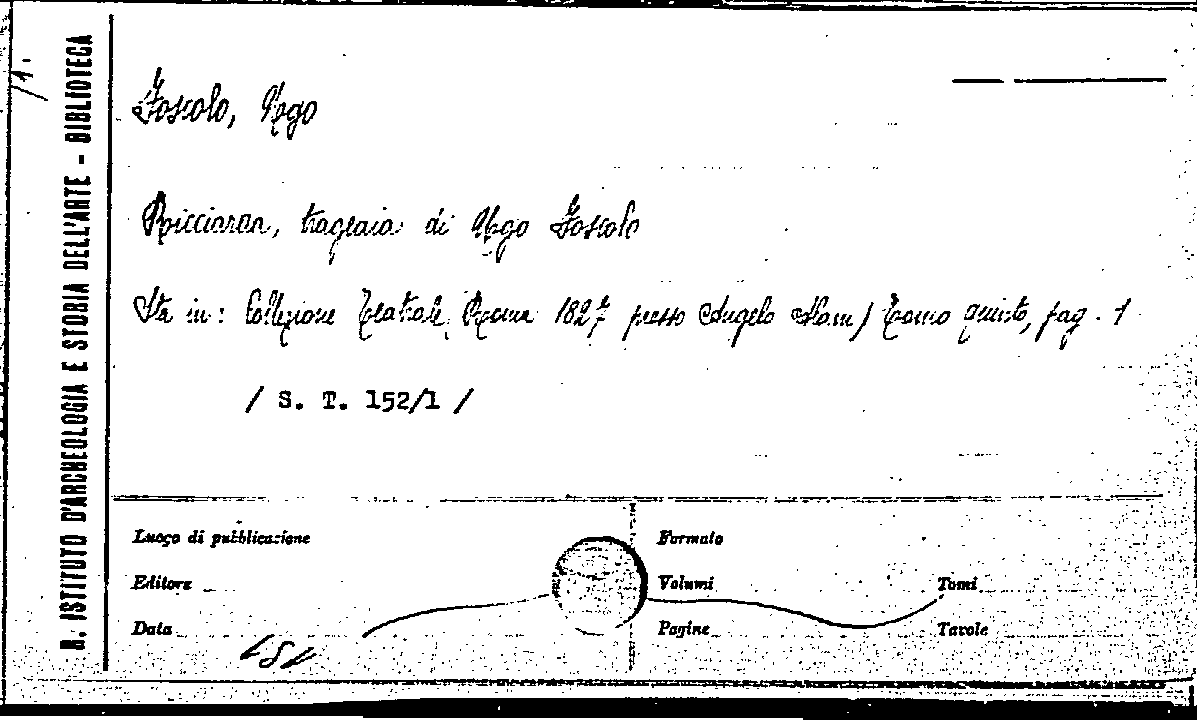 R. ISTITUTO D'ARCHEOLOGIA E STORIA DELL'ARTE - BIBLIOTECA
Foscolo, Ugo
Ricciarda, tragedia di Ugo Foscolo
Sta in: Collezione Teatrale, Roma 1827 presso Angelo Tomo quinto, pag. 1
/ S. T. 152/1 /
Luogo di pubblicazione
Formato
Editore
Volumi
Tomi
Data
Pagine
Tavole